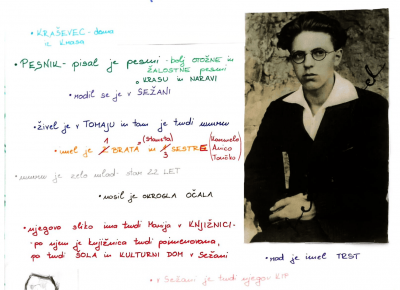 • KRAŠEVEC - doma
iz Krasa
• PESNIK - pisal je pesmi - bolj OTOŽNE in
ŽALOSTNE pesmi
• KRASU in NARAVI
• rodil se je v SEŽANI
• živel je v TOMAJU in tam je tudi umrl
• imel je 1 BRATA (Stanota) in 3 SESTRE (Karmela
Anica
Tončka)
• umrl je zelo mlad - star 22 LET
• nosil je OKROGLA OČALA
• njegovo sliko ima tudi Marija v KNJIŽNICI -
- po njem je knjižnica tudi poimenovana,
pa tudi ŠOLA in KULTURNI DOM v Sežani
• rad je imel TRST
• v Sežani je tudi njegov KIP